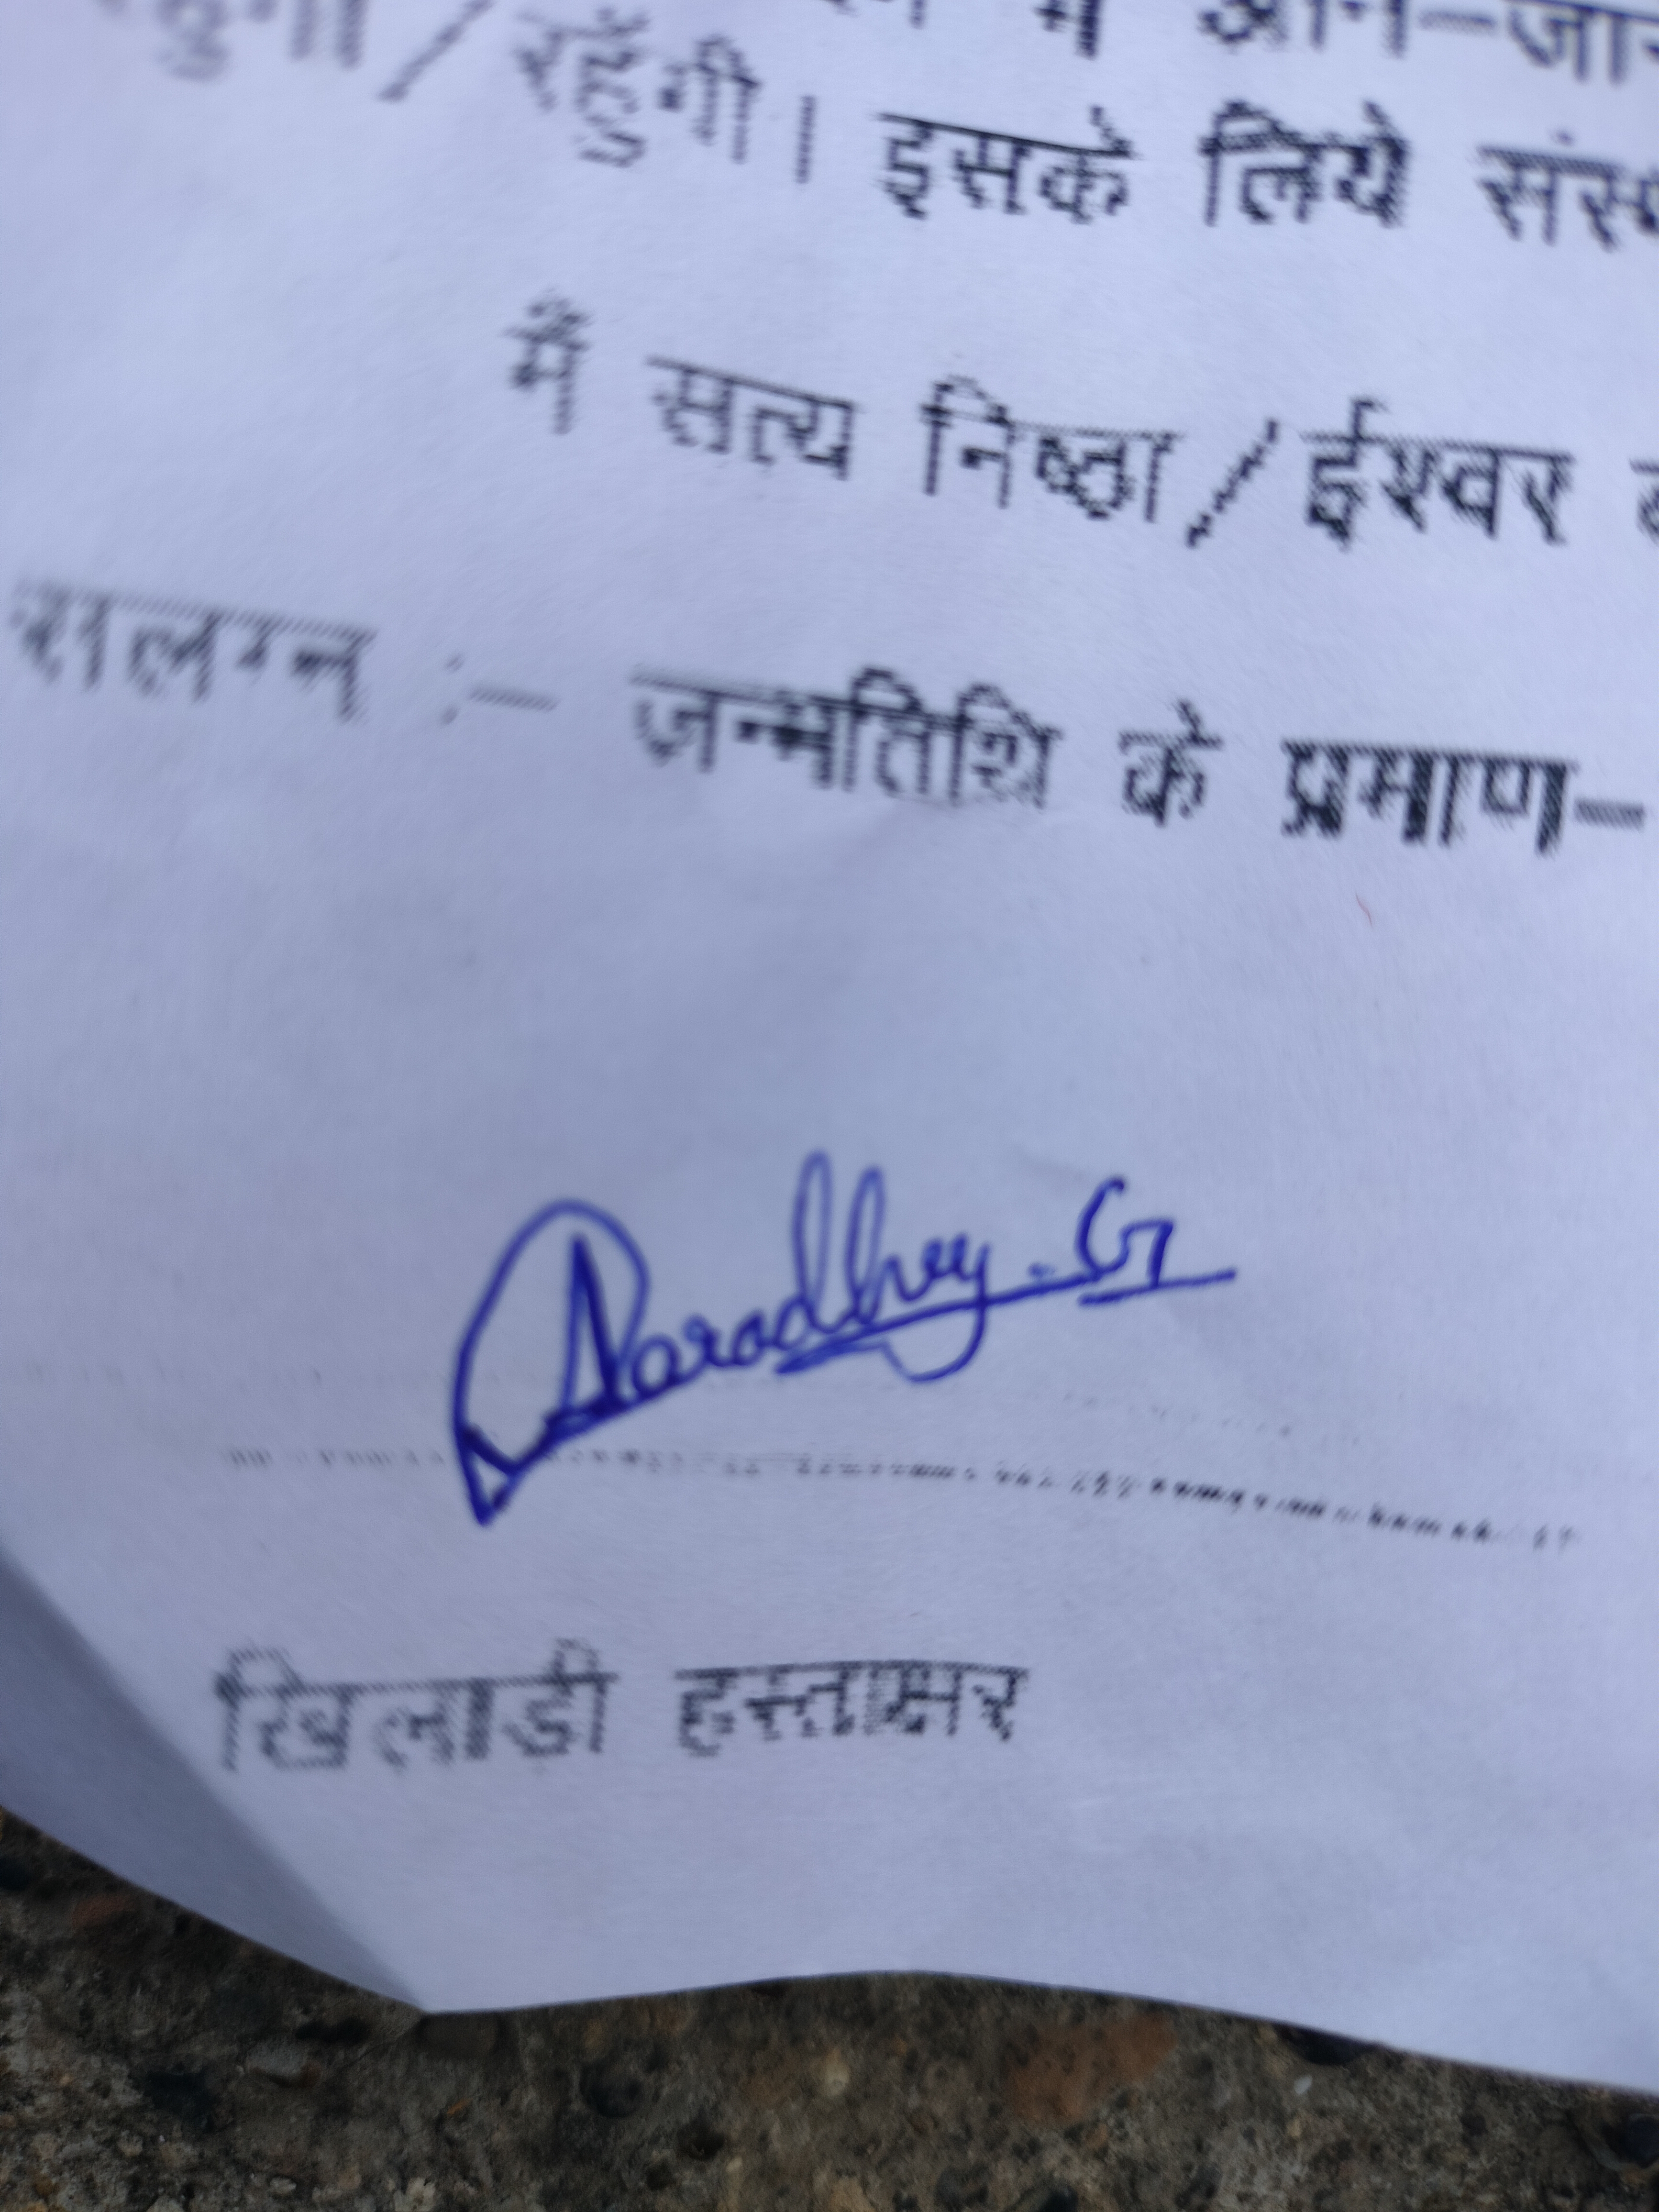 में आने-जाने
रहूँगी। इसके लिये
मैं सत्य निष्ठा/ईश्वर
सलग्न :- जन्मतिथि के प्रमाण-
Aaradhy. G
खिलाडी हस्ताक्षर